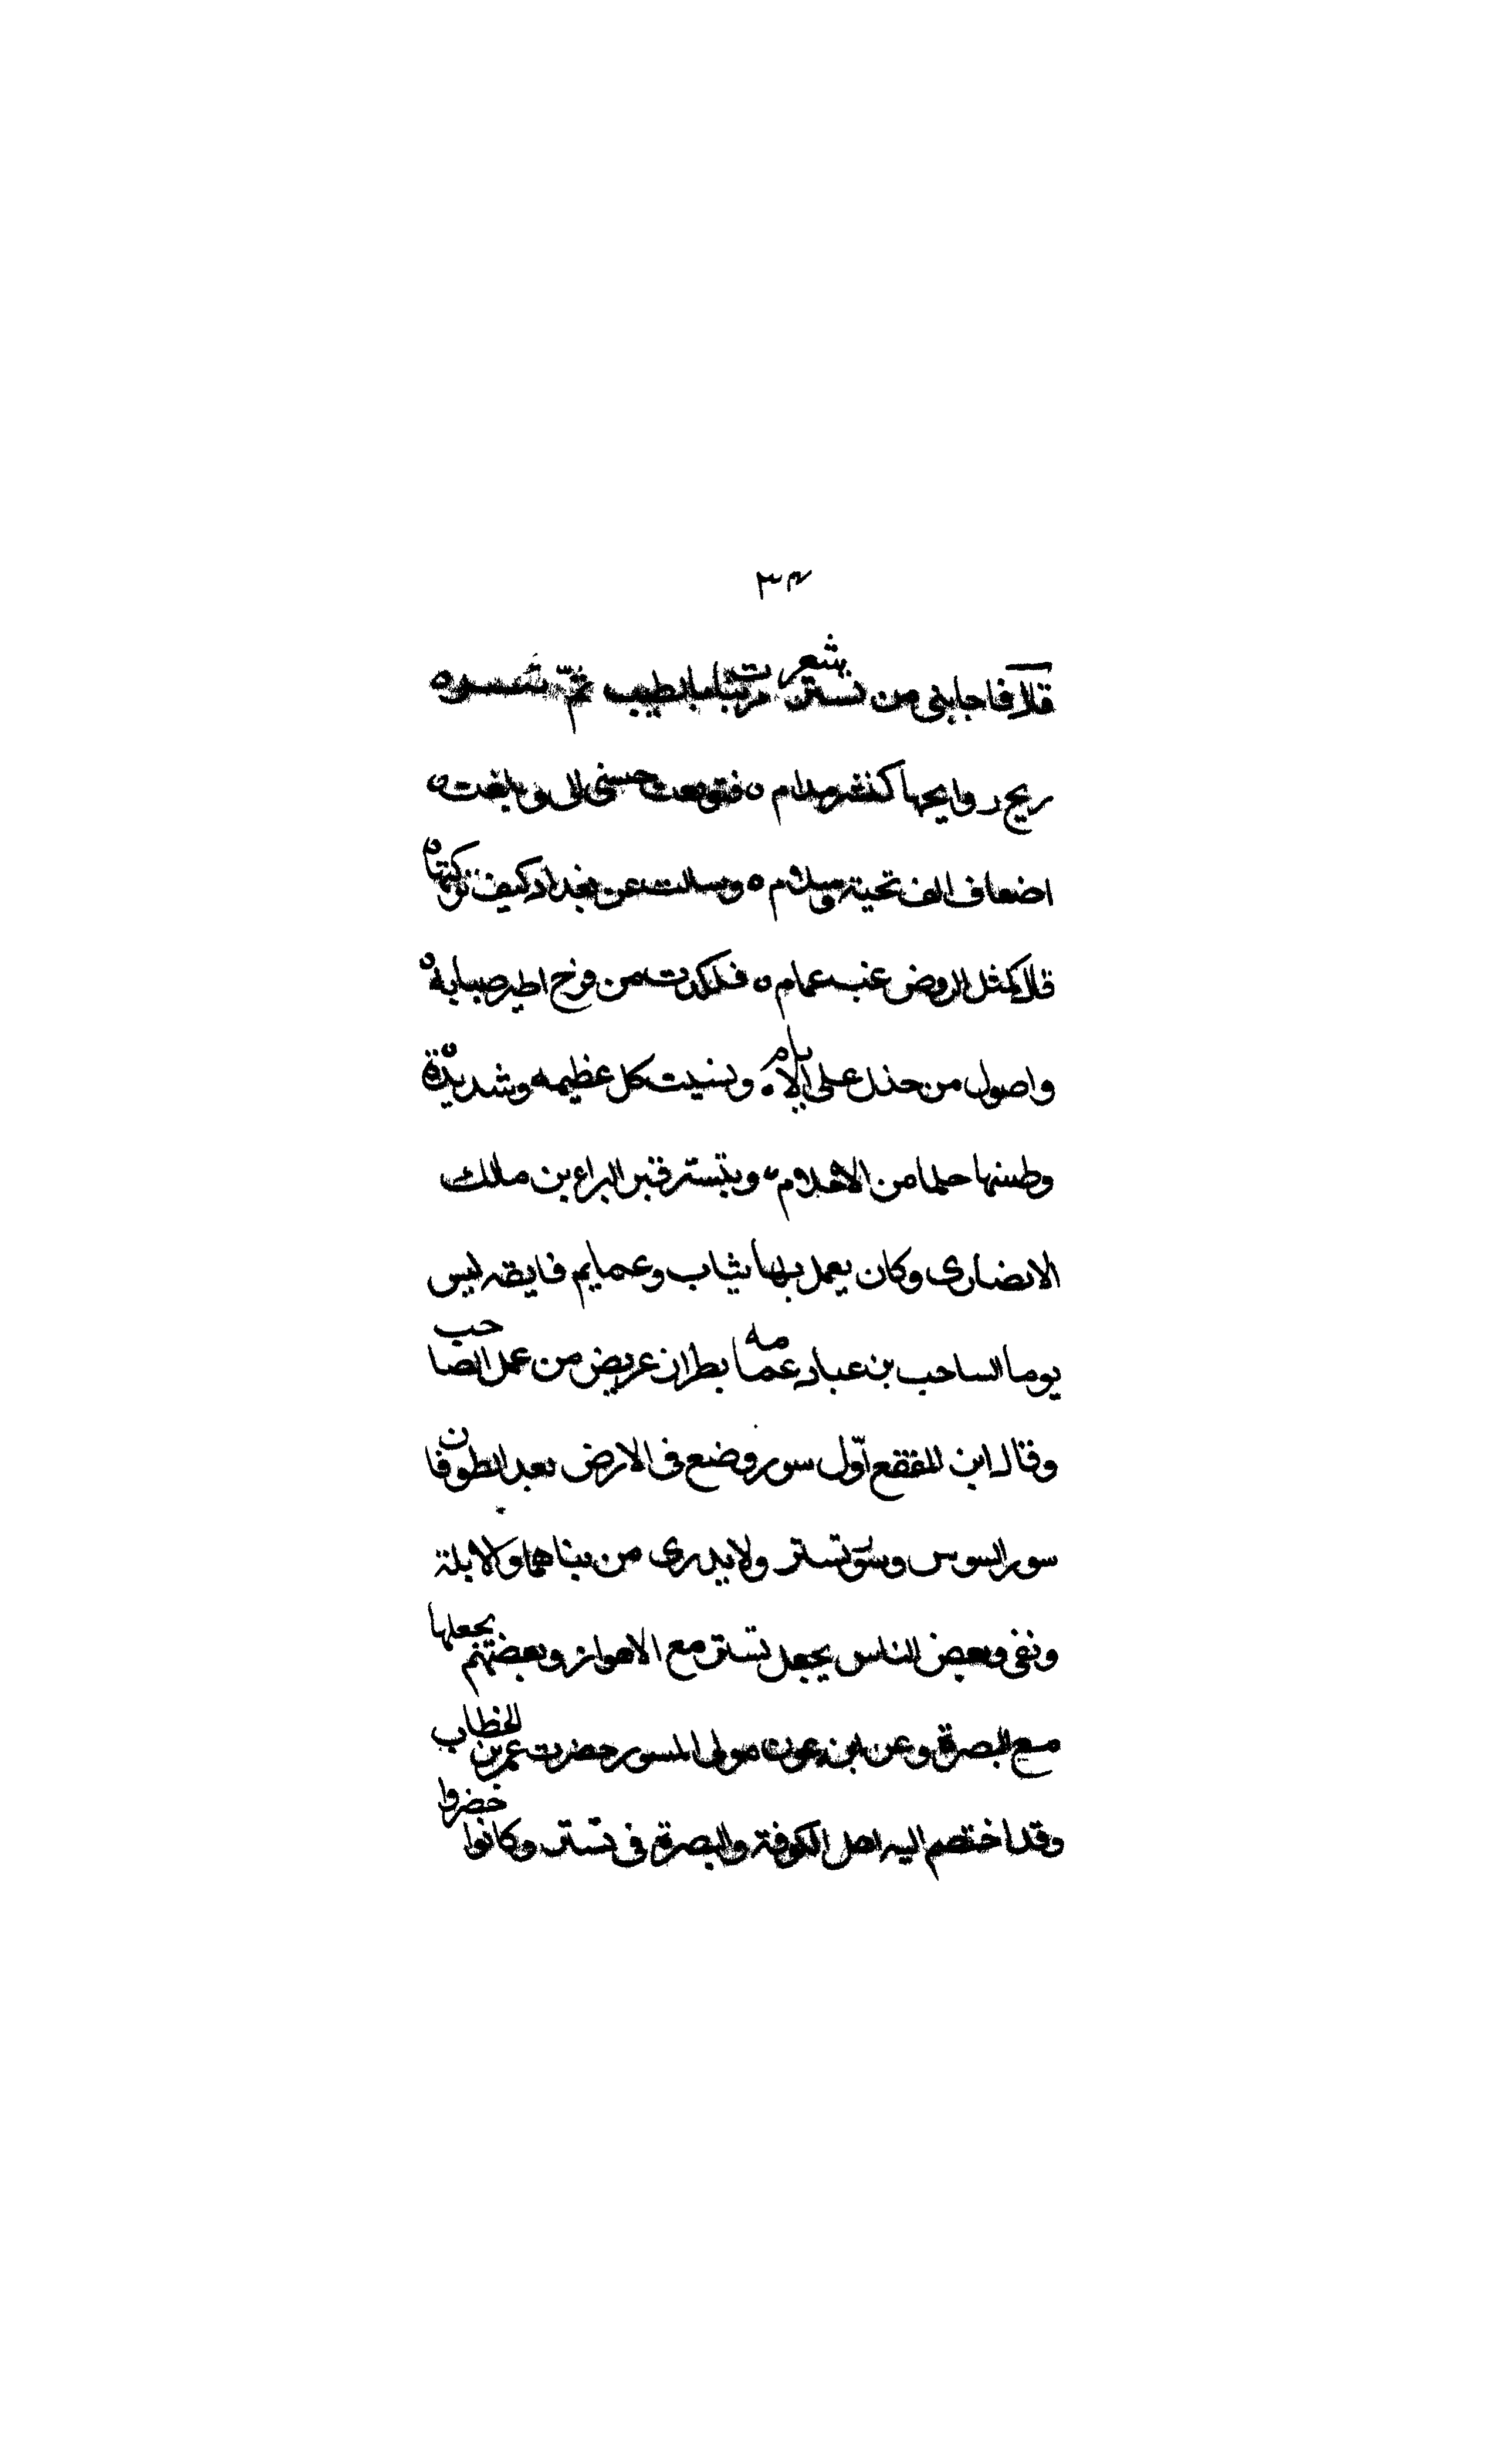 ٣٤
قلا فاجابنى من تستر بشعر مرتبا بالطيب ثم
ريح روايحها كنشر مدام ه فتوهمت حسنى الى وبلغت ه
اضعاف الف تحية وسلام ه وسالت عن بغداد كيف تركتها ه
قلا كمثل الروض غب غمام ه فلكدت من فرح اطير صبابة ه
واصول من جذل على الايام ه ونسيت كل عظيمه وشديدة ه
وظننتها حلما من الاحلام ه وبتستر قبر البراء بن مالك
الانصارى وكان يعمل بها ثياب وعمايم فايقه لبس
يوما الساحب بن عباد عمامه بطران عريض من عمل الصاحب
وقال ابن المقفع اوّل سور وضع فى الارض بعد الطوفان
سور السوس وسور تستر ولا يدرى من بناهما والابلة
وبعض الناس يجعل تستر مع الاهواز وبعضهم يجعلها
مع البصرة وعن ابن عون مولى المسور حضرت عمر بن الخطاب
وقد اختصم اليه اهل الكوفة والبصرة فى تستر وكانوا حضروا